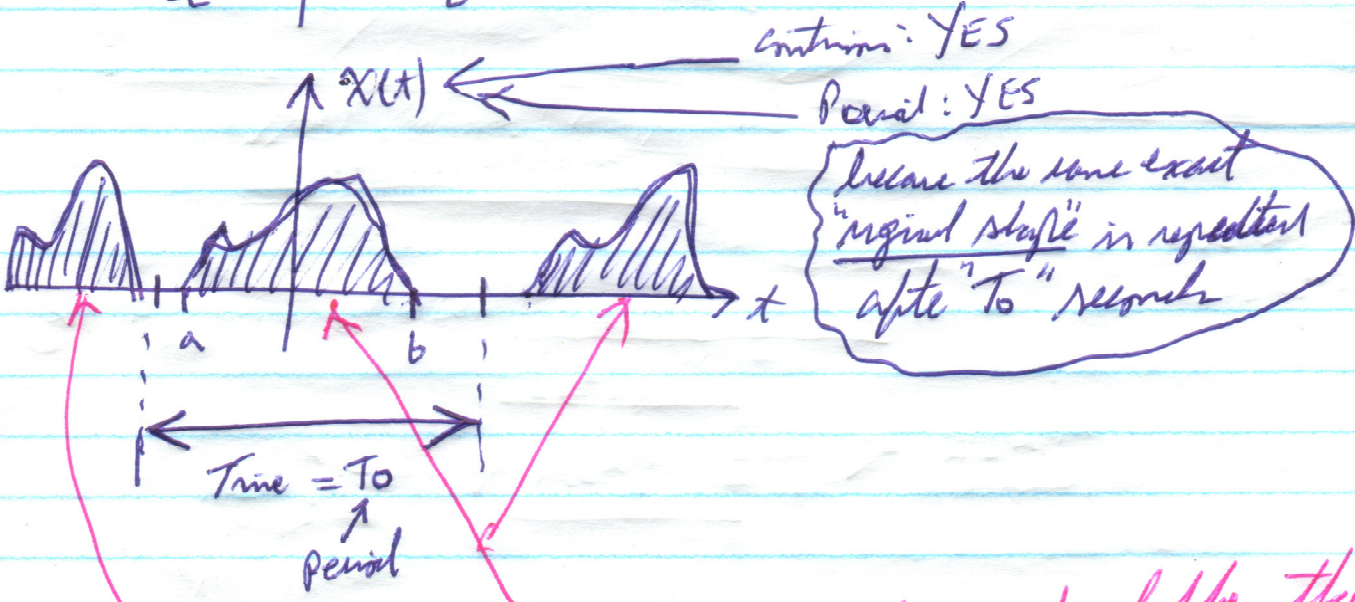 continuous: YES
x(t)
Period: YES
because the same exact
"original shape" is repeated
after "To" seconds
t
a
b
Time = To
period
the